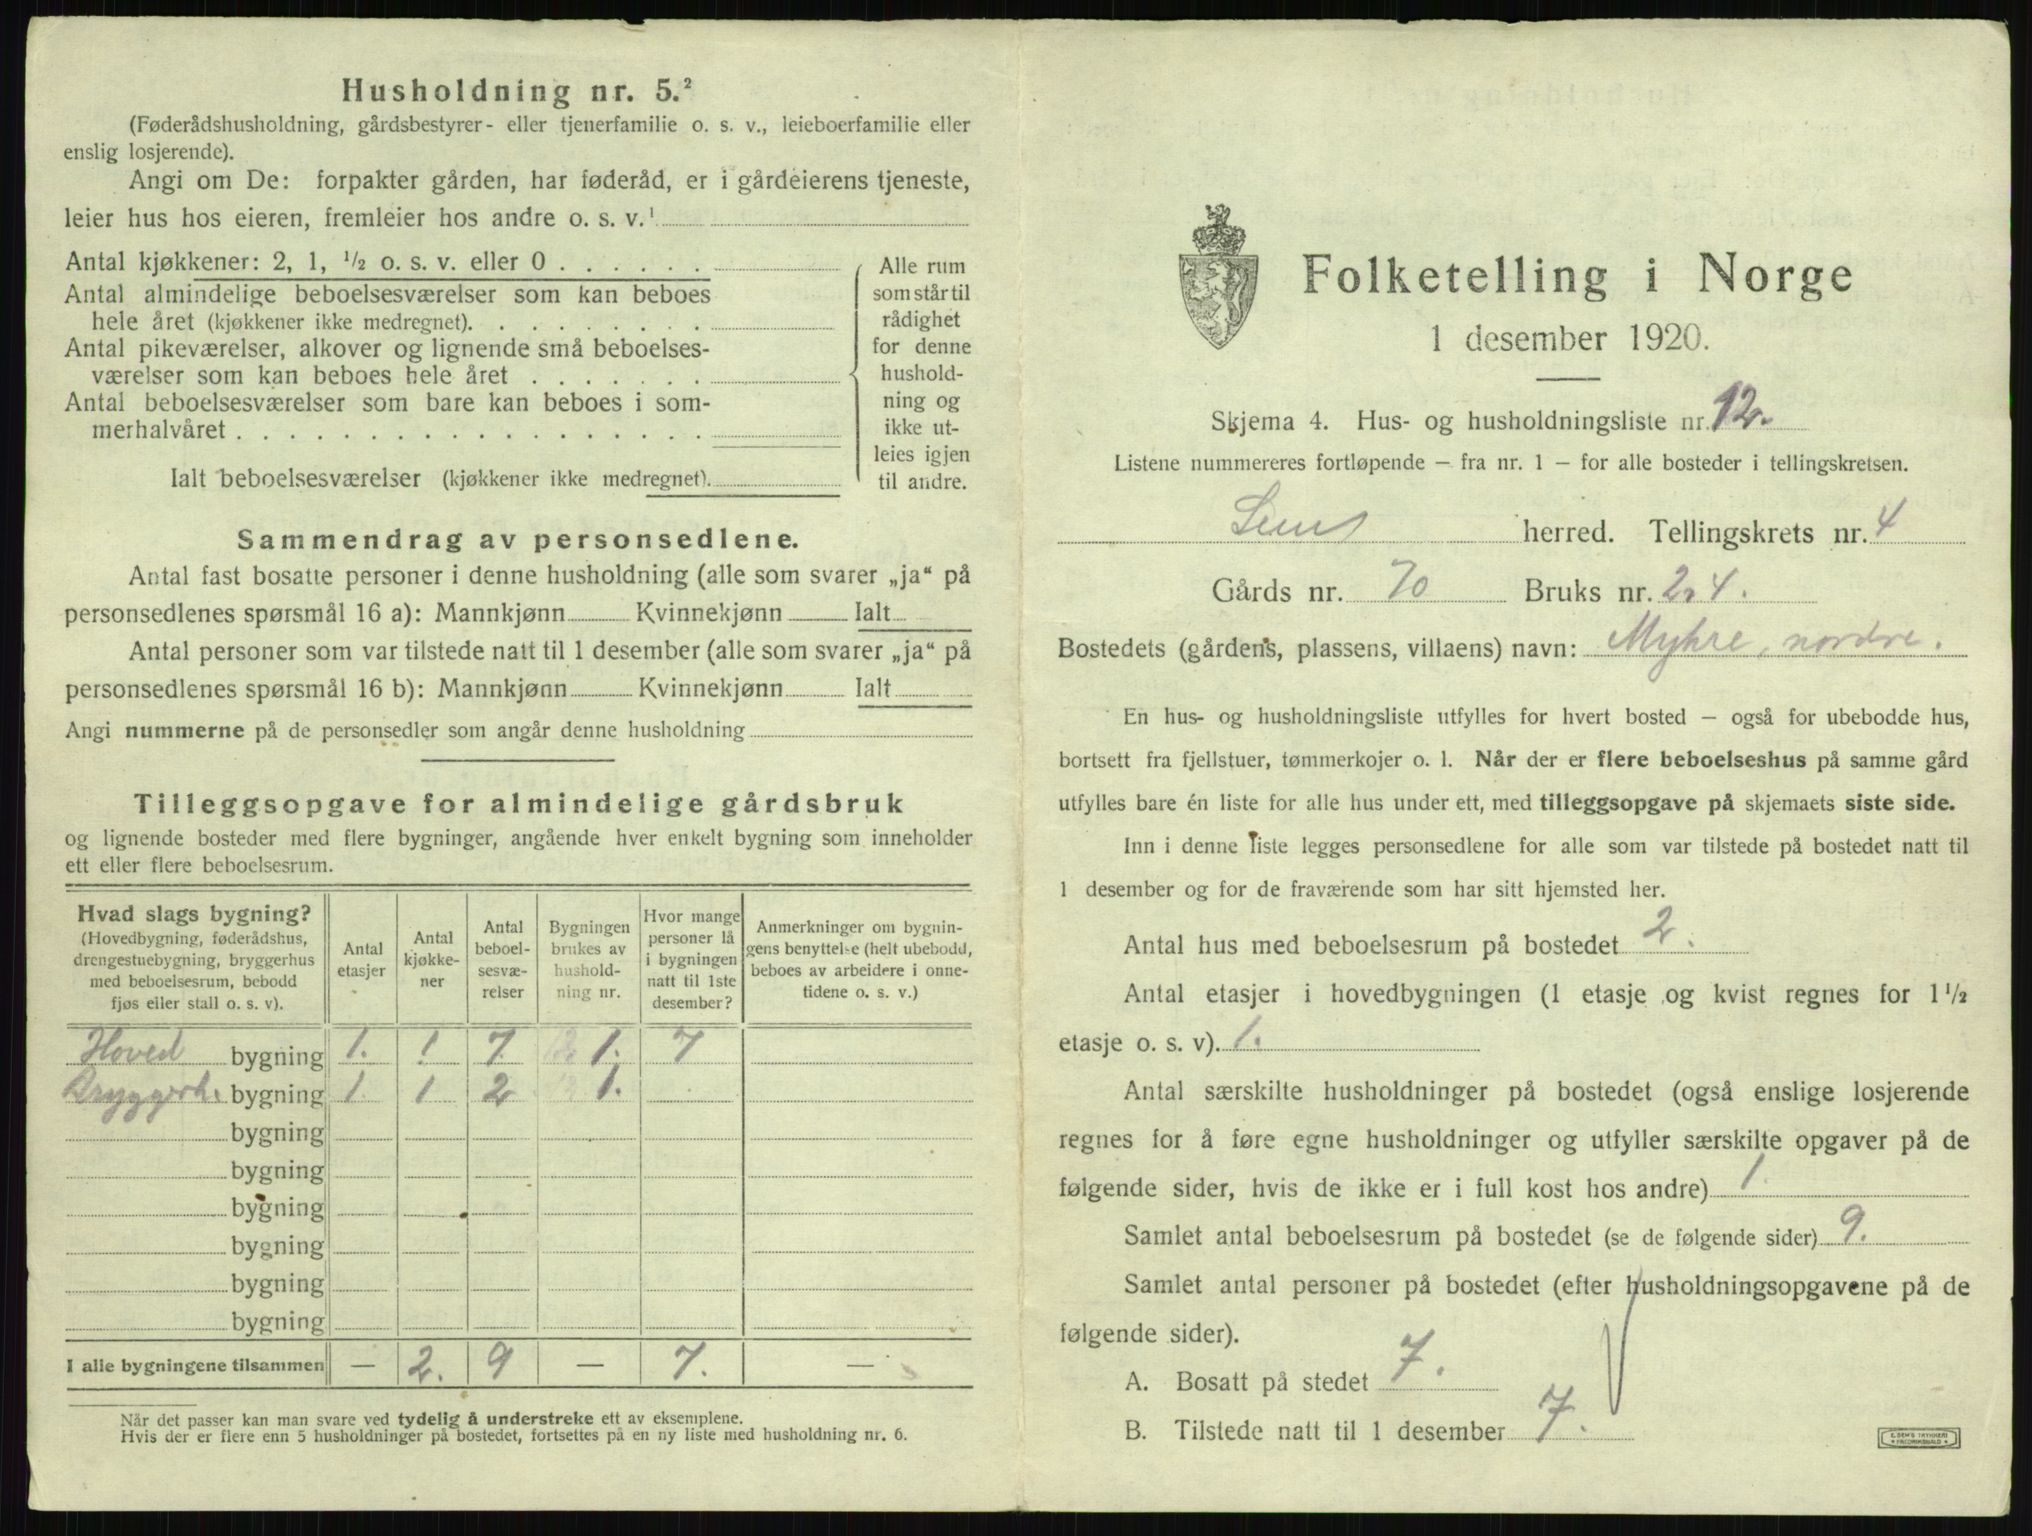 Husholdning nr. 5.²
(Føderådshusholdning, gårdsbestyrer- eller tjenerfamilie o. s. v., leieboerfamilie eller
enslig losjerende).
Angi om De: forpakter gården, har føderåd, er i gårdeierens tjeneste,
leier hus hos eieren, fremleier hos andre o. s. v.¹
Antal kjøkkener: 2, 1, ½ o. s. v. eller 0 . . . . . .
Antal almindelige beboelsesværelser som kan beboes
hele året (kjøkkener ikke medregnet). . . . . . . . .
Antal pikeværelser, alkover og lignende små beboelses-
værelser som kan beboes hele året . . . . . . .
Antal beboelsesværelser som bare kan beboes i som-
merhalvåret . . . . . . . . . . . . . . . . . .
Ialt beboelsesværelser (kjøkkener ikke medregnet).
Alle rum
som står til
rådighet
for denne
hushold-
ning og
ikke ut-
leies igjen
til andre.
Sammendrag av personsedlene.
Antal fast bosatte personer i denne husholdning (alle som svarer „ja“ på
personsedlenes spørsmål 16 a): Mannkjønn Kvinnekjønn Ialt
Antal personer som var tilstede natt til 1 desember (alle som svarer „ja“ på
personsedlenes spørsmål 16 b): Mannkjønn Kvinnekjønn Ialt
Angi nummerne på de personsedler som angår denne husholdning
Tilleggsopgave for almindelige gårdsbruk
og lignende bosteder med flere bygninger, angående hver enkelt bygning som inneholder
ett eller flere beboelsesrum.
Hvad slags bygning?
(Hovedbygning, føderådshus,
drengestuebygning, bryggerhus
med beboelsesrum, bebodd
fjøs eller stall o. s. v).
Antal
etasjer
Antal
kjøkke-
ner
Antal
beboel-
sesvæ-
relser
Bygningen
brukes av
hushold-
ning nr.
Hvor mange
personer lå
i bygningen
natt til 1ste
desember?
Anmerkninger om bygnin-
gens benyttelse (helt ubebodd,
beboes av arbeidere i onne-
tidene o. s. v.)
Hoved bygning 1. 1 7 1. 7
Bryggerh. bygning 1. 1 2 1.
bygning
bygning
bygning
bygning
bygning
bygning
I alle bygningene tilsammen — 2. 9 — 7. —
Når det passer kan man svare ved tydelig å understreke ett av eksemplene.
Hvis der er flere enn 5 husholdninger på bostedet, fortsettes på en ny liste med husholdning nr. 6.
Folketelling i Norge
1 desember 1920.
Skjema 4. Hus- og husholdningsliste nr. 12.
Listene nummereres fortløpende – fra nr. 1 – for alle bosteder i tellingskretsen.
Sem herred. Tellingskrets nr. 4
Gårds nr. 70 Bruks nr. 2,4.
Bostedets (gårdens, plassens, villaens) navn: Myhre, nordre.
En hus- og husholdningsliste utfylles for hvert bosted – også for ubebodde hus,
bortsett fra fjellstuer, tømmerkojer o. l. Når der er flere beboelseshus på samme gård
utfylles bare én liste for alle hus under ett, med tilleggsopgave på skjemaets siste side.
Inn i denne liste legges personsedlene for alle som var tilstede på bostedet natt til
1 desember og for de fraværende som har sitt hjemsted her.
Antal hus med beboelsesrum på bostedet 2.
Antal etasjer i hovedbygningen (1 etasje og kvist regnes for 1½
etasje o. s. v). 1.
Antal særskilte husholdninger på bostedet (også enslige losjerende
regnes for å føre egne husholdninger og utfyller særskilte opgaver på de
følgende sider, hvis de ikke er i full kost hos andre) 1.
Samlet antal beboelsesrum på bostedet (se de følgende sider) 9.
Samlet antal personer på bostedet (efter husholdningsopgavene på de
følgende sider).
A. Bosatt på stedet 7.
B. Tilstede natt til 1 desember 7.
E. SEM'S TRYKKERI
FREDRIKSHALD